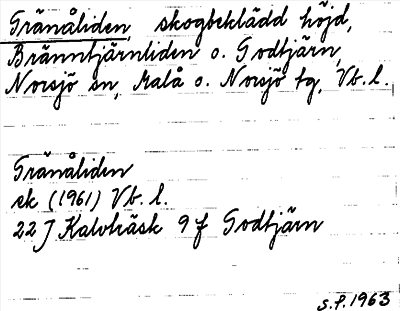 Tränåliden, skogbeklädd höjd,
Bränntjärnliden o. Godtjärn,
Norsjö sn, Malå o. Norsjö tg, Vb. l.
Tränåliden
ek (1961) Vb. l.
22 J Kalvträsk 9 f Godtjärn
S.P. 1963